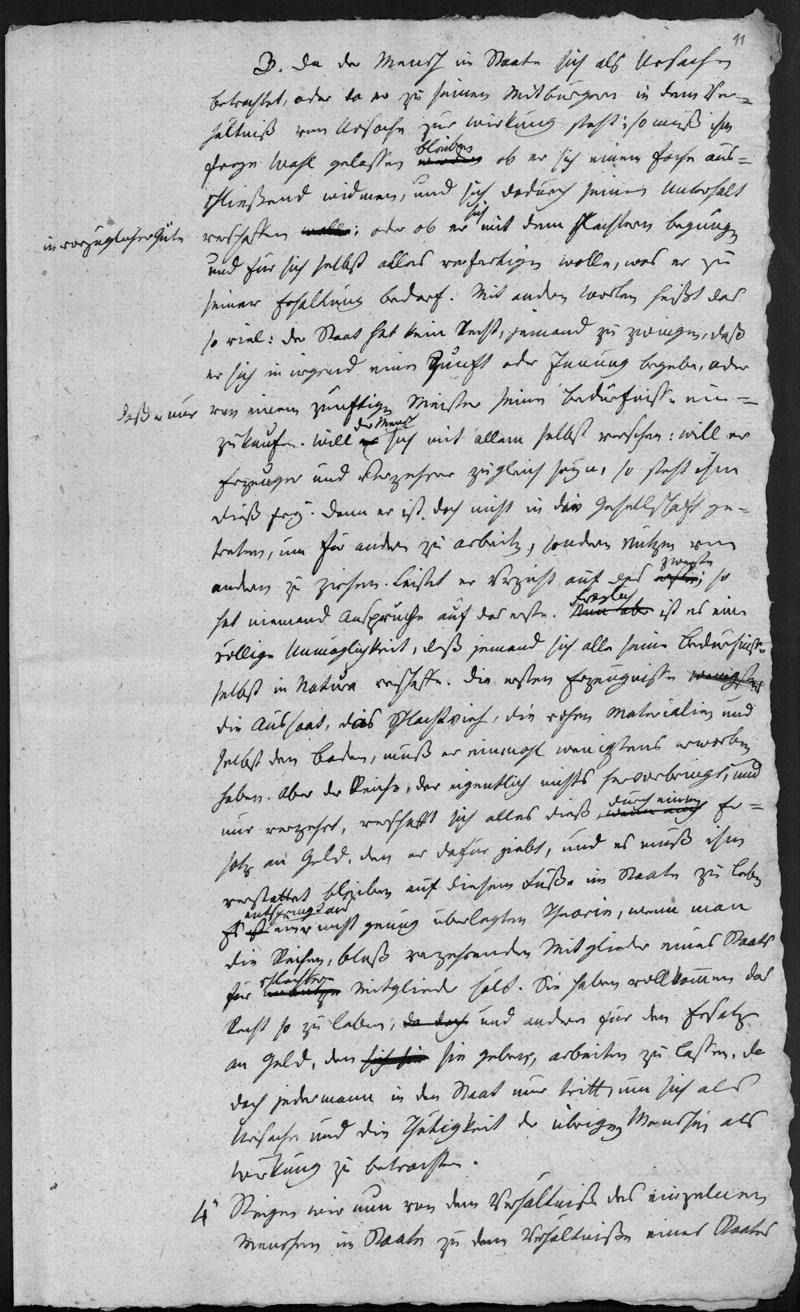 11
3. Da der Mensch im Staate sich als Ursache
betrachtet, oder da er zu seinen Mitbürgern in dem Ver=
hältniß von Ursache zur Wirkung steht; so muß ihm
freye Wahl gelassen bleiben werden ob er sich einem Fache aus=
schließend widmen, und sich dadurch seinen Unterhalt
in vorzüglicher Güte
verschaffen wolle; oder ob er sich mit dem Schlechtern begnügen
und für sich selbst alles verfertigen wolle, was er zu
seiner Erhaltung bedarf. Mit andern Worten heißt das
so viel: der Staat hat kein Recht, jemand zu zwingen, daß
er sich in irgend eine Zunft oder Innung begebe, oder
daß er nur
von einem zünftigen Meister seine Bedürfnisse ein=
zukaufen. Will der Mensch er sich mit allem selbst versehen: will er
Erzeuger und Verzehrer zugleich seyn, so steht ihm
dieß frey. Denn er ist doch nicht in die Gesellschaft ge=
treten, um für andere zu arbeiten, sondern Nutzen von
andern zu ziehen. Leistet er Verzicht auf das zweyte erste, so
hat niemand Ansprüche auf das erste. Freylich Nun aber ist es eine
völlige Unmöglichkeit, daß jemand sich alle seine Bedürfnisse
selbst in Natura verschaffe. Die ersten Erzeugnisse wenigstens
die Aussaat, das Schlachtvieh, die rohen Materialien und
selbst den Boden, muß er einmahl wenigstens erworben
haben. Aber der Reiche, der eigentlich nichts hervorbringt, und
nur verzehrt, verschafft sich alles dieß durch einen Er=
satz an Geld, den er dafür giebt, und es muß ihm
verstattet bleiben auf diesem Fuße im Staate zu leben
Es ist entspringt aus einer nicht genug überlegten Theorie, wenn man
die Reichen, bloß verzehrenden Mitglieder eines Staats
für schlechte unnütze Mitglieder hält. Sie haben vollkommen das
Recht so zu leben, da doch und andere für den Ersatz
an Geld, den sie geben, arbeiten zu lassen, da
doch jedermann in den Staat nur tritt, um sich als
Ursache und die Thätigkeit der übrigen Menschen als
Wirkung zu betrachten.
4. Steigen wir nun von dem Verhältniß des einzelnen
Menschen im Staate zu dem Verhältniße eines Staates